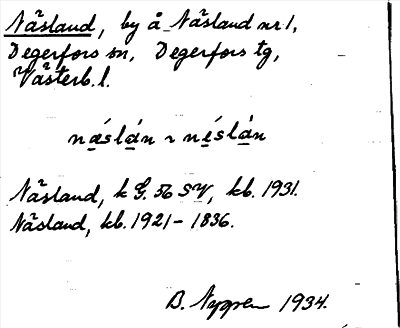 Näsland, by å Näsland nr 1,
Degerfors sn, Degerfors tg,
Västerb. l.
nǽ̱slá̱n ~ né̱slá̱n
Näsland, k G. 56 SV, kb. 1931.
Näsland, kb. 1921 – 1836.
B. 1934.